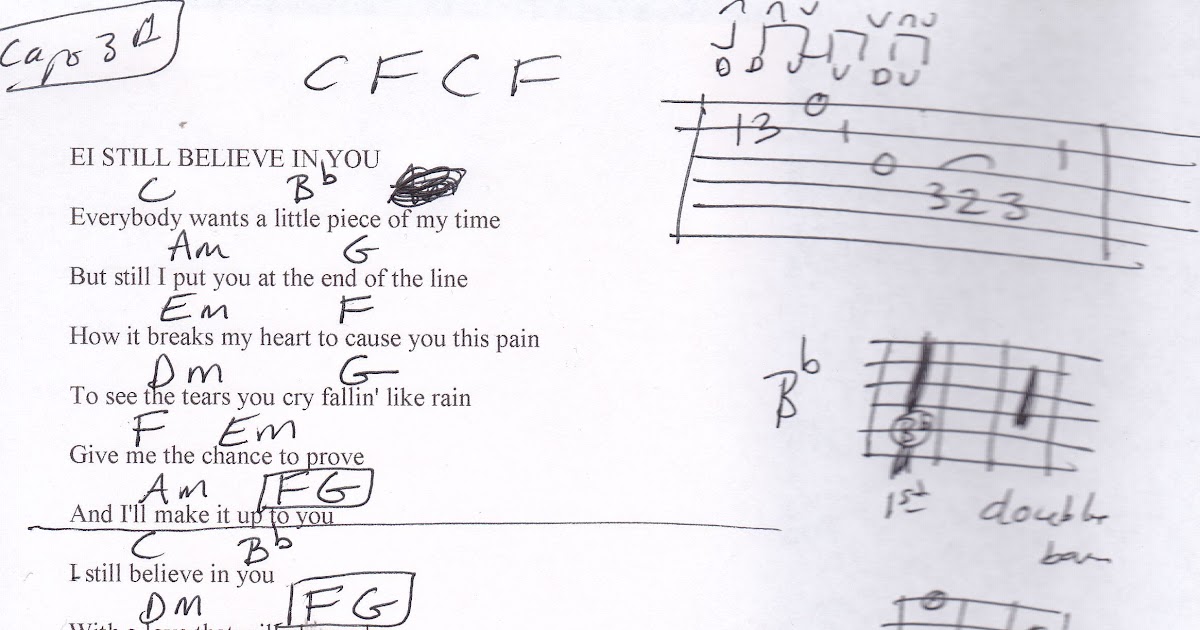 Capo 3
C F C F
EI STILL BELIEVE IN YOU
C Bb
Everybody wants a little piece of my time
Am G
But still I put you at the end of the line
Em F
How it breaks my heart to cause you this pain
Dm G
To see the tears you cry fallin' like rain
F Em
Give me the chance to prove
Am FG
And I'll make it up to you
C Bb
I still believe in you
DM FG
D D U U D U
0
1 3 1 1
0
3 2 3
Bb
1st double
bar